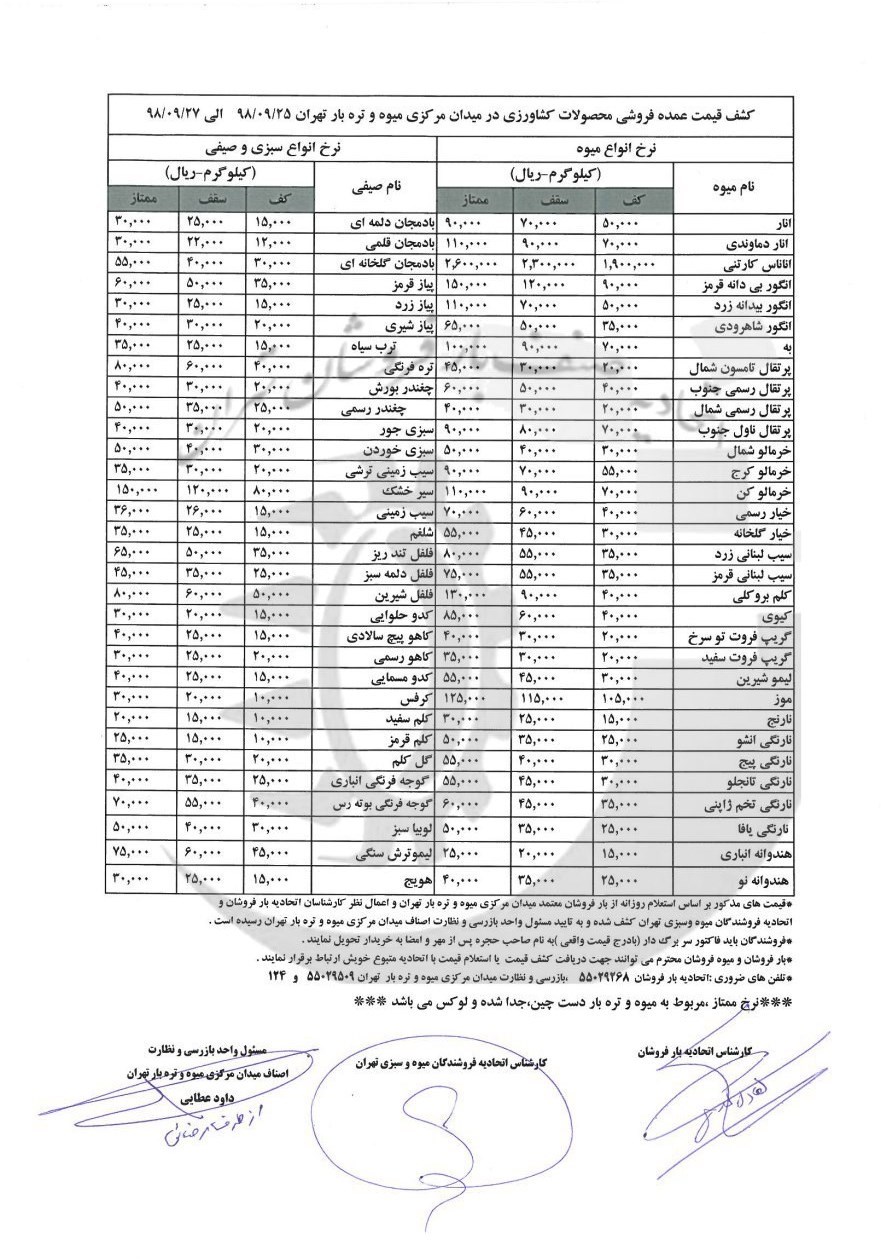 کشف قیمت عمده فروشی محصولات کشاورزی در میدان مرکزی میوه و تره بار تهران ۹۸/۰۹/۲۵ الی ۹۸/۰۹/۲۷
نرخ انواع میوه نرخ انواع سبزی و صیفی
نام میوه (کیلوگرم-ریال) نام صیفی (کیلوگرم-ریال)
کف سقف ممتاز کف سقف ممتاز
انار ۵۰,۰۰۰ ۷۰,۰۰۰ ۹۰,۰۰۰ بادمجان دلمه ای ۱۵,۰۰۰ ۲۵,۰۰۰ ۳۰,۰۰۰
انار دماوندی ۷۰,۰۰۰ ۹۰,۰۰۰ ۱۱۰,۰۰۰ بادمجان قلمی ۱۲,۰۰۰ ۲۲,۰۰۰ ۳۰,۰۰۰
اناناس کارتنی ۱,۹۰۰,۰۰۰ ۲,۳۰۰,۰۰۰ ۲,۶۰۰,۰۰۰ بادمجان گلخانه ای ۳۰,۰۰۰ ۴۰,۰۰۰ ۵۵,۰۰۰
انگور بی دانه قرمز ۹۰,۰۰۰ ۱۲۰,۰۰۰ ۱۵۰,۰۰۰ پیاز قرمز ۳۵,۰۰۰ ۵۰,۰۰۰ ۶۰,۰۰۰
انگور بیدانه زرد ۵۰,۰۰۰ ۷۰,۰۰۰ ۱۱۰,۰۰۰ پیاز زرد ۱۵,۰۰۰ ۲۵,۰۰۰ ۳۰,۰۰۰
انگور شاهرودی ۳۵,۰۰۰ ۵۰,۰۰۰ ۶۵,۰۰۰ پیاز شیری ۲۰,۰۰۰ ۳۰,۰۰۰ ۴۰,۰۰۰
به ۷۰,۰۰۰ ۹۰,۰۰۰ ۱۰۰,۰۰۰ ترب سیاه ۱۵,۰۰۰ ۲۵,۰۰۰ ۳۵,۰۰۰
پرتقال تامسون شمال ۲۰,۰۰۰ ۳۰,۰۰۰ ۴۵,۰۰۰ تره فرنگی ۴۰,۰۰۰ ۶۰,۰۰۰ ۸۰,۰۰۰
پرتقال رسمی جنوب ۴۰,۰۰۰ ۵۰,۰۰۰ ۶۰,۰۰۰ چغندر بورش ۲۰,۰۰۰ ۳۰,۰۰۰ ۴۰,۰۰۰
پرتقال رسمی شمال ۲۰,۰۰۰ ۳۰,۰۰۰ ۴۰,۰۰۰ چغندر رسمی ۲۵,۰۰۰ ۳۵,۰۰۰ ۵۰,۰۰۰
پرتقال ناول جنوب ۷۰,۰۰۰ ۸۰,۰۰۰ ۹۰,۰۰۰ سبزی جور ۲۰,۰۰۰ ۳۰,۰۰۰ ۴۰,۰۰۰
خرمالو شمال ۳۰,۰۰۰ ۴۰,۰۰۰ ۵۰,۰۰۰ سبزی خوردن ۳۰,۰۰۰ ۴۰,۰۰۰ ۵۰,۰۰۰
خرمالو کرج ۵۵,۰۰۰ ۷۰,۰۰۰ ۹۰,۰۰۰ سیب زمینی ترشی ۲۰,۰۰۰ ۳۰,۰۰۰ ۳۵,۰۰۰
خرمالو کن ۷۰,۰۰۰ ۹۰,۰۰۰ ۱۱۰,۰۰۰ سیر خشک ۸۰,۰۰۰ ۱۲۰,۰۰۰ ۱۵۰,۰۰۰
خیار رسمی ۴۰,۰۰۰ ۶۰,۰۰۰ ۷۰,۰۰۰ سیب زمینی ۱۵,۰۰۰ ۲۶,۰۰۰ ۳۶,۰۰۰
خیار گلخانه ۳۰,۰۰۰ ۴۵,۰۰۰ ۵۵,۰۰۰ شلغم ۱۵,۰۰۰ ۲۵,۰۰۰ ۳۵,۰۰۰
سیب لبنانی زرد ۳۵,۰۰۰ ۵۵,۰۰۰ ۸۰,۰۰۰ فلفل تند ریز ۳۵,۰۰۰ ۵۰,۰۰۰ ۶۵,۰۰۰
سیب لبنانی قرمز ۳۵,۰۰۰ ۵۵,۰۰۰ ۷۵,۰۰۰ فلفل دلمه سبز ۲۵,۰۰۰ ۳۵,۰۰۰ ۴۵,۰۰۰
کلم بروکلی ۴۰,۰۰۰ ۹۰,۰۰۰ ۱۳۰,۰۰۰ فلفل شیرین ۵۰,۰۰۰ ۶۰,۰۰۰ ۸۰,۰۰۰
کیوی ۴۰,۰۰۰ ۶۰,۰۰۰ ۸۵,۰۰۰ کدو حلوایی ۱۵,۰۰۰ ۲۰,۰۰۰ ۳۰,۰۰۰
گریپ فروت تو سرخ ۲۰,۰۰۰ ۳۰,۰۰۰ ۴۰,۰۰۰ کاهو پیچ سالادی ۱۵,۰۰۰ ۲۵,۰۰۰ ۴۰,۰۰۰
گریپ فروت سفید ۲۰,۰۰۰ ۳۰,۰۰۰ ۳۵,۰۰۰ کاهو رسمی ۲۰,۰۰۰ ۲۵,۰۰۰ ۳۰,۰۰۰
لیمو شیرین ۳۰,۰۰۰ ۴۵,۰۰۰ ۵۵,۰۰۰ کدو مسمایی ۱۵,۰۰۰ ۲۵,۰۰۰ ۴۰,۰۰۰
موز ۱۰۵,۰۰۰ ۱۱۵,۰۰۰ ۱۲۵,۰۰۰ کرفس ۱۰,۰۰۰ ۲۰,۰۰۰ ۳۰,۰۰۰
نارنج ۱۵,۰۰۰ ۲۵,۰۰۰ ۳۰,۰۰۰ کلم سفید ۱۰,۰۰۰ ۱۵,۰۰۰ ۲۰,۰۰۰
نارنگی انشو ۲۵,۰۰۰ ۳۵,۰۰۰ ۵۰,۰۰۰ کلم قرمز ۱۰,۰۰۰ ۱۵,۰۰۰ ۲۵,۰۰۰
نارنگی پیج ۳۰,۰۰۰ ۴۰,۰۰۰ ۵۵,۰۰۰ گل کلم ۲۰,۰۰۰ ۳۰,۰۰۰ ۳۵,۰۰۰
نارنگی تانجلو ۳۰,۰۰۰ ۴۵,۰۰۰ ۵۵,۰۰۰ گوجه فرنگی انباری ۲۵,۰۰۰ ۳۵,۰۰۰ ۴۰,۰۰۰
نارنگی تخم ژاپنی ۳۵,۰۰۰ ۴۵,۰۰۰ ۶۰,۰۰۰ گوجه فرنگی بوته رس ۴۰,۰۰۰ ۵۵,۰۰۰ ۷۰,۰۰۰
نارنگی یافا ۲۵,۰۰۰ ۳۵,۰۰۰ ۵۰,۰۰۰ لوبیا سبز ۳۰,۰۰۰ ۴۰,۰۰۰ ۵۰,۰۰۰
هندوانه انباری ۱۵,۰۰۰ ۲۰,۰۰۰ ۲۵,۰۰۰ لیموترش سنگی ۴۵,۰۰۰ ۶۰,۰۰۰ ۷۵,۰۰۰
هندوانه نو ۲۵,۰۰۰ ۳۵,۰۰۰ ۴۰,۰۰۰ هویج ۱۵,۰۰۰ ۲۵,۰۰۰ ۳۰,۰۰۰
*قیمت های مذکور بر اساس استعلام روزانه از بار فروشان معتمد میدان مرکزی میوه و تره بار تهران و اعمال نظر کارشناسان اتحادیه بار فروشان و
اتحادیه فروشندگان میوه وسبزی تهران کشف شده و به تایید مسئول واحد بازرسی و نظارت اصناف میدان مرکزی میوه و تره بار تهران رسیده است .
*فروشندگان باید فاکتور سر برگ دار (بادرج قیمت واقعی )به نام صاحب حجره پس از مهر و امضا به خریدار تحویل نمایند .
*بار فروشان و میوه فروشان محترم می توانند جهت دریافت کشف قیمت یا استعلام قیمت با اتحادیه متبوع خویش ارتباط برقرار نمایند .
*تلفن های ضروری :اتحادیه بار فروشان ۵۵۰۲۹۲۶۸ ،بازرسی و نظارت میدان مرکزی میوه و تره بار تهران ۵۵۰۲۹۵۰۹ و ۱۲۴
***نرخ ممتاز ،مربوط به میوه و تره بار دست چین،جدا شده و لوکس می باشد ***
کارشناس اتحادیه بار فروشان
کارشناس اتحادیه فروشندگان میوه و سبزی تهران
مسئول واحد بازرسی و نظارت
اصناف میدان مرکزی میوه و تره بار تهران
داود عطایی